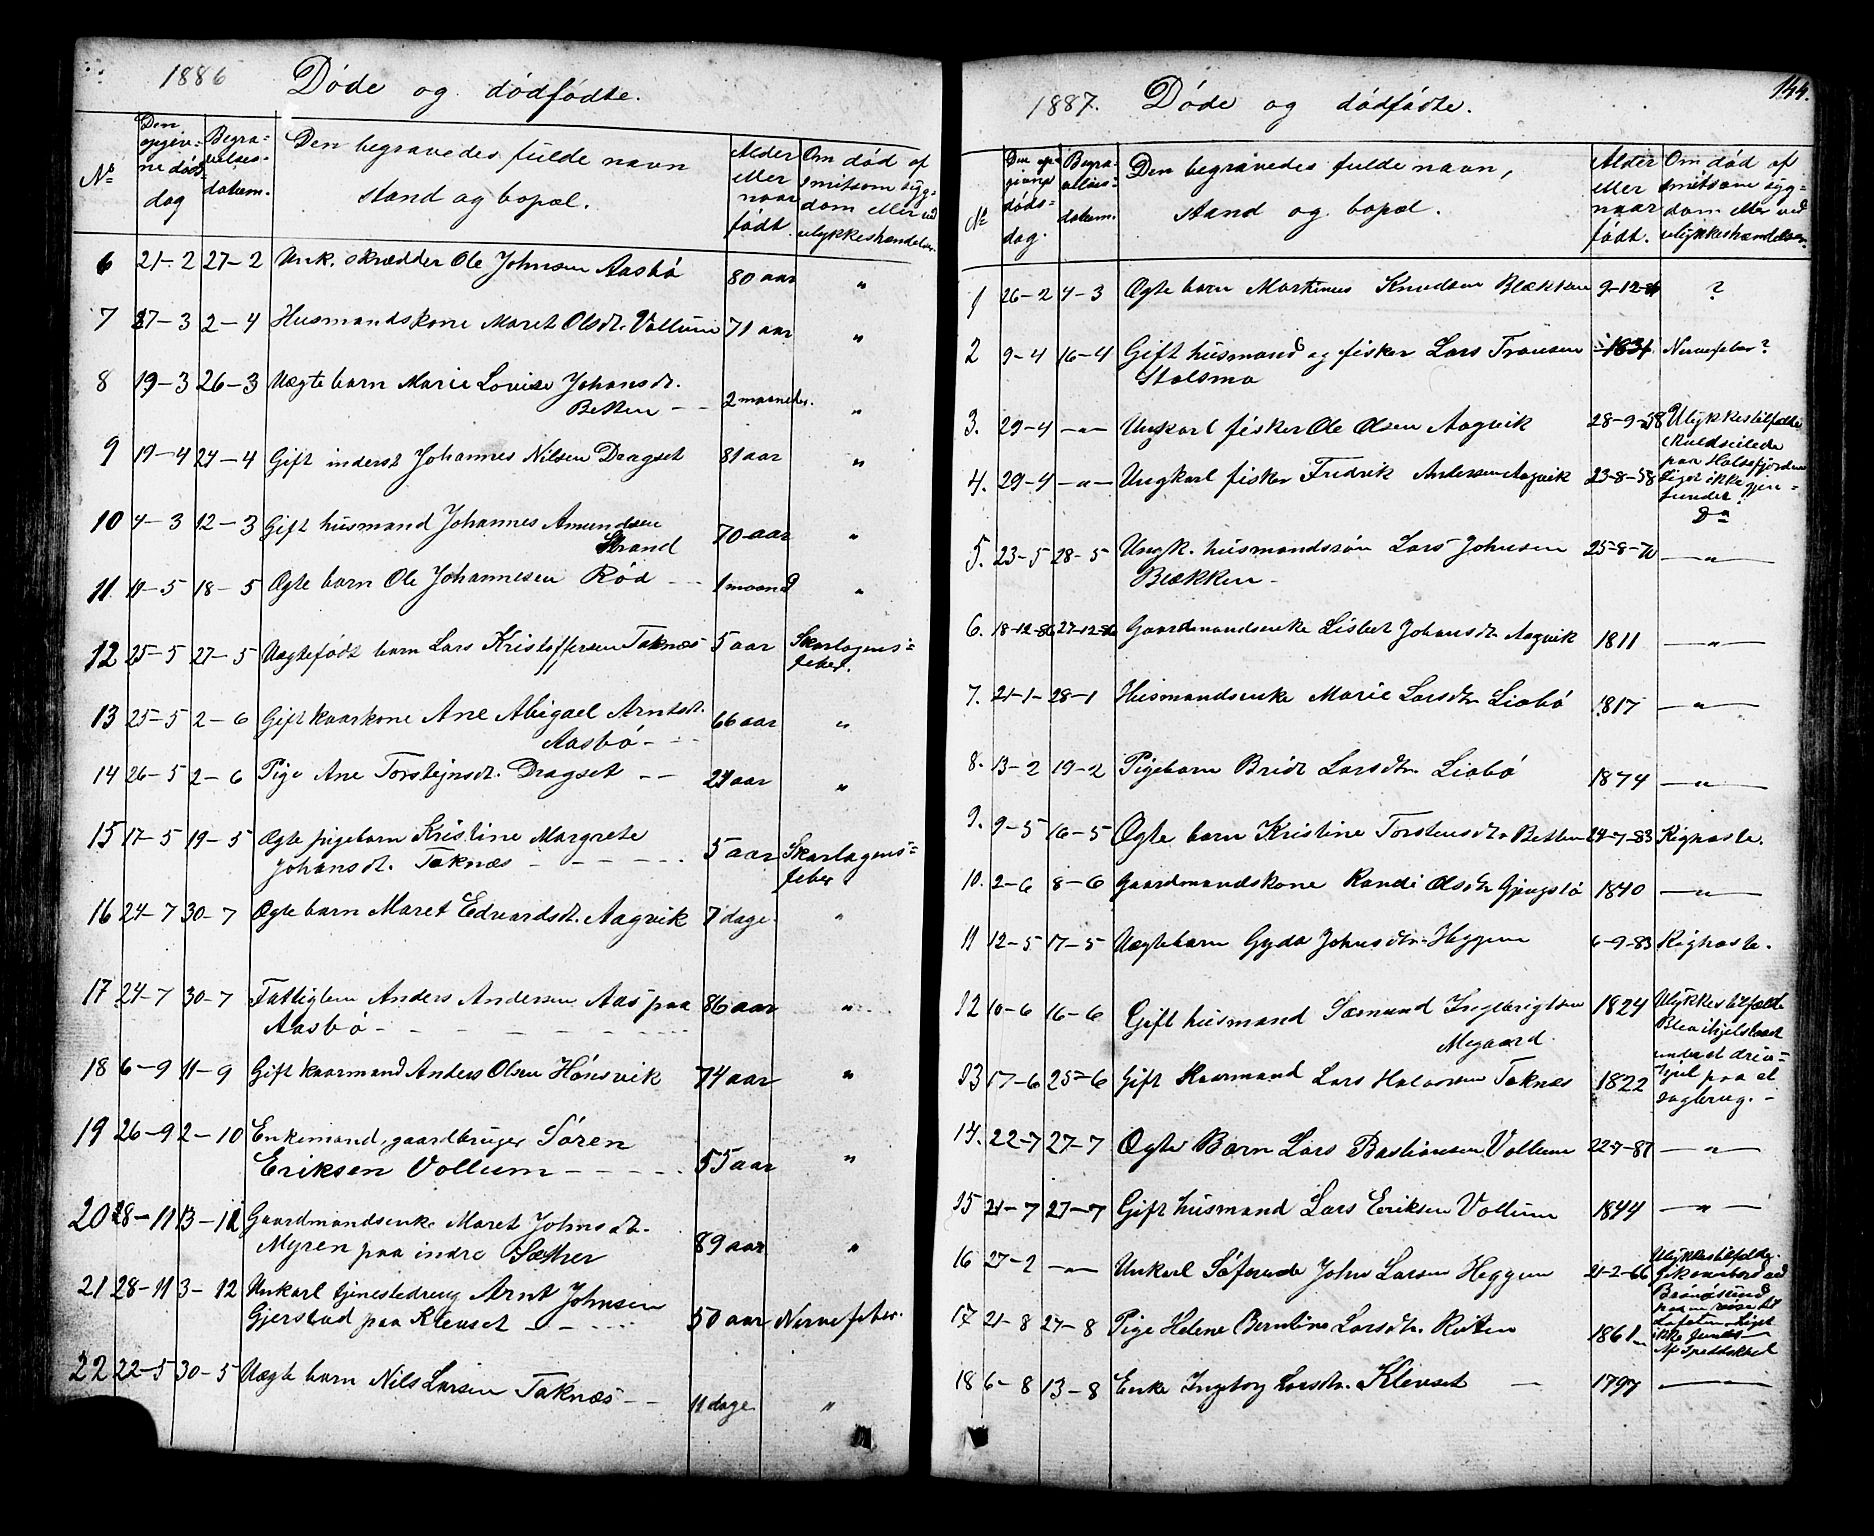 1886 Døde og dødfødte.
No Den opgivne døds dag Begravelses- datum. Den begravedes fulde navn stand og bopæl. Alder eller naar født. Om død af smitsom sygdom eller ved ulykkeshændelse
6 21-2 27-2 Unk. skrædder Ole Johnsen Aasbø 80 aar "
7 27-3 2-4 Husmandskone Maret Olsdt. Vollum 71 aar "
8 19-3 26-3 Uægte barn Marie Lovise Johansdt.
Betten - - 2 maaneder. "
9 19-4 24-4 Gift inderst Johannes Nilsen Dragset 81 aar "
10 4-3 12-3 Gift husmand Johannes Amundsen
Strand 70 aar "
11 11-5 18-5 Ægte barn Ole Johannesen Rød - - 1 maaned "
12 25-5 27-5 Uægtefødt barn Lars Kristoffersen Taknæs 5 aar Skarlagens=
feber.
13 25-5 2-6 Gift kaarkone Ane Abigael Arntsdt.
Aasbø - - 66 aar "
14 26-5 2-6 Pige Ane Torstejnsdt. Dragset - - 24 aar "
15 17-5 19-5 Ægte pigebarn Kristine Margrete
Johansdt. Taknæs - - - - - 5 aar Skarlagens=
feber
16 24-7 30-7 Ægte barn Maret Edvardsdt. Aagvik 7 dage "
17 24-7 30-7 Fattiglem Anders Andersen Aas paa
Aasbø - - - - - - - 86 aar "
18 6-9 11-9 Gift kaarmand Anders Olsen Hønsvik 74 aar "
19 26-9 2-10 Enkemand, gaardbruger Søren
Eriksen Vollum - - - - - 55 aar "
20 28-11 13-12 Gaardmandsenke Maret Johnsdt.
Myren paa indre Sæther 89 aar "
21 28-11 3-12 Unkarl tjenestedreng Arnt Johnsen
Gjerstad paa Klevset - - - 50 aar Nervefeber.
22 22-5 30-5 Uægte barn Nils Larsen Taknæs - - 11 dage "
1887. Døde og dødfødte. 144.
No Den opgivne døds- dag. Begravelses- datum. Den begravedes fulde navn, stand og bopæl. Alder eller naar født. Om død af smitsom sygdom eller ved ulykkeshændelser
1 26-2 4-3 Ægte barn Martinus Knudsen Blækken 9-12-86 ?
2 9-4 16-4 Gift husmand og fisker Lars Traneen 1831 Nervefeber?
Stolsmo
3. 29-4 -"- Unkarl fisker Ole Olsen Aagvik 28-9-58 Ulykkestilfælde
kuldseilede
paa Halsefjorden
Liget ikke gjen-
fundet.
4. 29-4 -"- Ungkarl fisker Fredrik Andersen Aagvik 23-8-58 Do
5. 23-5 28-5 Ungk. husmandssøn Lars Johnsen 25-8-70 -"-
Blækken -
6. 18-12-86 27-12-86 Gaardmandsenke Lisbet Johansdt. Aagvik 1811 -"-
7. 21-1- 28-1 Husmandsenke Marie Larsdtr Liabø 1817 -"-
8. 13-2 19-2 Pigebarn Brit Larsdtr Liabø 1874 -"-
9. 9-5 16-5 Ægte barn Kristine Torstensdtr Betten 24-7-83 Kighoste.
10. 2-6 8-6 Gaardmandskone Randi Olsdtr Gjengstø 1840 -"-
11 12-5 17-5 Uægte barn Gyda Johnsdtr. Heggem 6-9-83 Kighoste.
12 10-6 16-6 Gift husmand Sæmund Ingebrigtsen
Megaard. 1824 Ulykkestilfælde
Blev ihjelslaaet
under et driv=
hjul paa et
sagbrug. -
13 17-6 25-6 Gift Kaarmand Lars Halvorsen Taknæs 1822
14. 22-7 27-7 Ægte Barn Lars Bastiansen Vollum 22-7-87 -"-
15 21-7 27-7 Gift husmand Lars Eriksen Vollum 1844 -"-
16 27-2 -"- Unkarl Søfarende John Larsen Heggem 21-2-66 Ulykkestilfælde.
Gik overbord ved
Brønøsund
paa en reise til
Lofoten. Liget
ikke fundet
17 21-8 27-8 Pige Helene Berntine Larsdtr. Røten 1861 Af Spedalskhed
18 6-8 13-8 Enke Ingeborg Larsdtr. Klevset - 1797 -